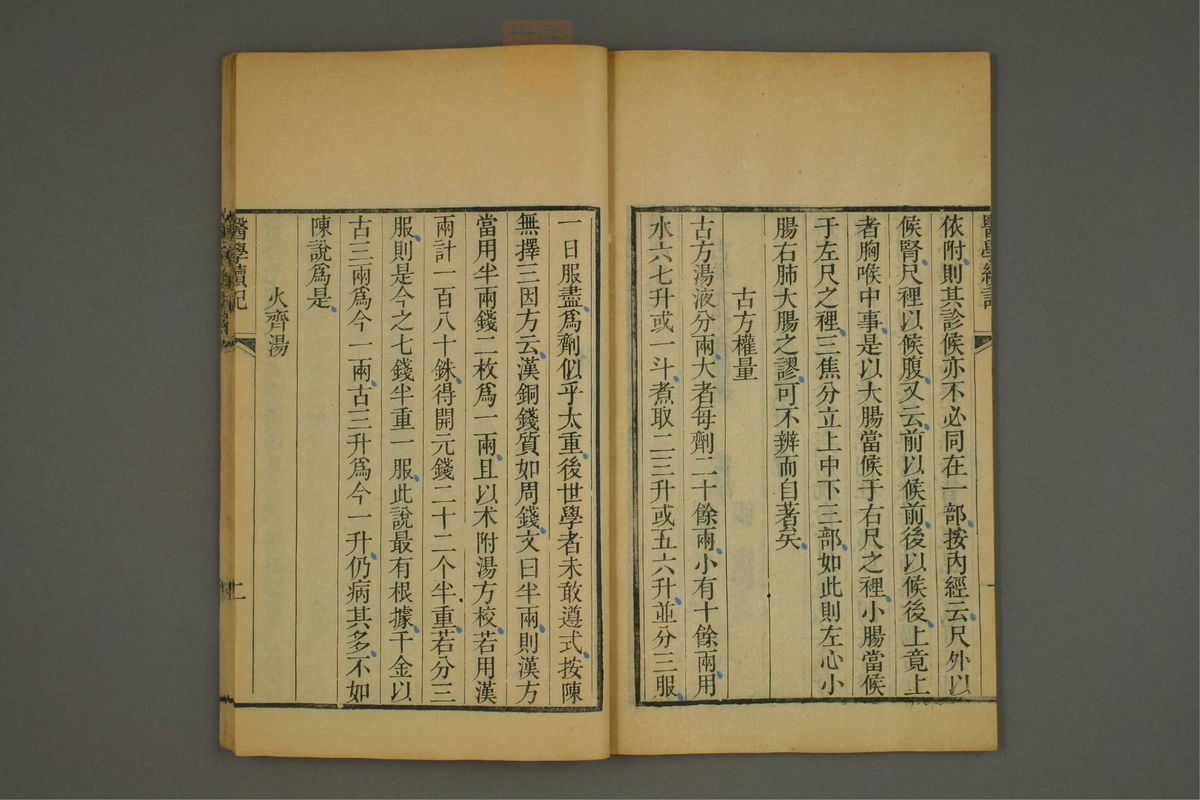 依附則其診候亦不必同在一部按內經云尺外以
候腎尺裡以候腹又云前以候前後以候後上竟上
者胸喉中事是以大腸當候于右尺之裡小腸當候
于左尺之裡三焦分立上中下三部如此則左心小
腸右肺大腸之謬可不辨而自著矣
古方權量
古方湯液分兩大者每劑二十餘兩小有十餘兩用
水六七升或一斗煮取二三升或五六升並分三服
一日服盡爲劑似乎太重後世學者未敢遵式按陳
無擇三因方云漢銅錢質如周錢文曰半兩則漢方
當用半兩錢二枚爲一兩且以术附湯方校若用漢
兩計一百八十銖得開元錢二十二个半重若分三
服則是今之七錢半重一服此說最有根據千金以
古三兩爲今一兩古三升爲今一升仍病其多不如
陳說爲是
火齊湯
醫學讀記